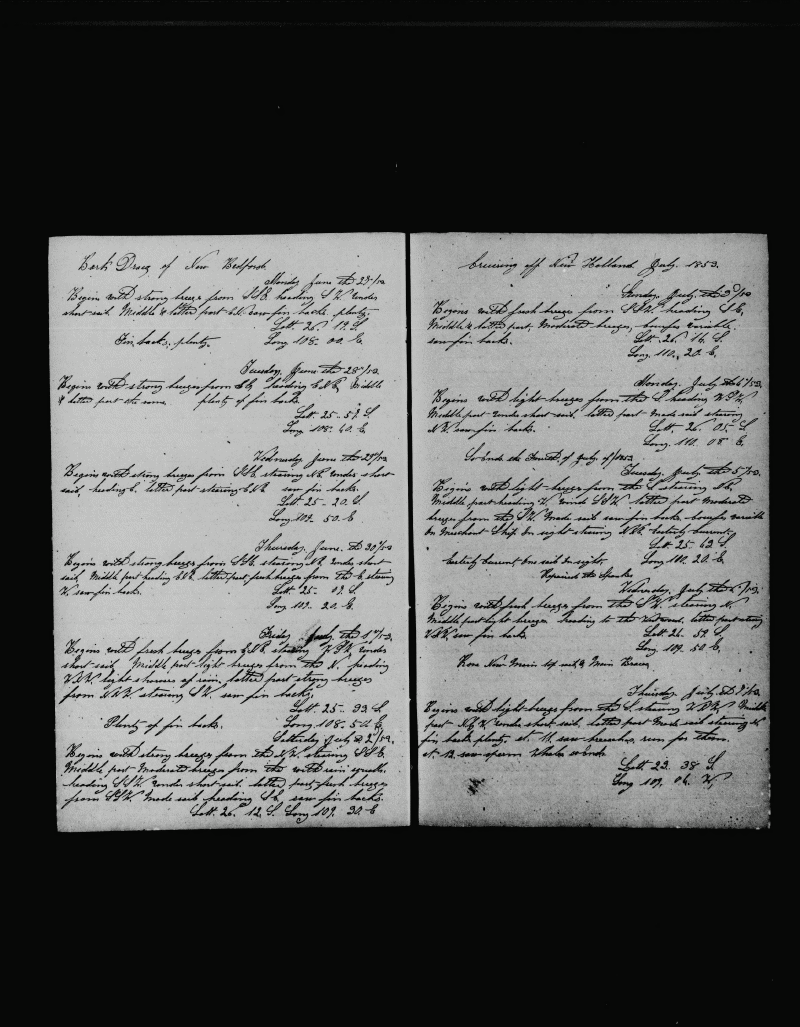 Bark Draco of New Bedford
Monday June the 27/53
Begins with strong breeze from SSE heading SW under
short sail. Middle & latter part saw fin backs plenty
Latt 26 19 S.
Fin backs plenty. Long 108. 00. E.
Tuesday June the 28/53.
Begins with strong breezes from heading ENE, Middle
& latter part the same plenty of fin backs
Latt 25 - 59 S
Long 108. 40. E
Wednesday June the 29/53
Begins with strong breezes from SSE steering NE under short
sail, heading E. latter part steering ENE saw fin backs.
Latt 25 - 20. S.
Long 109. 50. E
Thursday June the 30/53
Begins with strong breezes from SSE steering NE under short
sail Middle part heading ENE latter part fresh breezes from the E steering
W. saw fin backs. Latt 25. 09. S.
Long 109. 20. E.
Friday July the 1/53.
Begins with fresh breezes from steering under
short sail. Middle part light breezes from the N. heading
light showers of rain. latter part strong breezes
from NNW steering SW. saw fin backs.
Latt 25 - 33 S
Plenty of fin backs. Long 108 - 54 E
Satterday July the 2/53.
Begins with strong breezes from the NW. steering SSE
Middle part Moderate breezes from the with rain squalls.
heading SSW under short sail. latter part fresh breezes
from SSW. Made sail heading SE. saw fin backs.
Latt. 26. 12. S. Long 109. 30. E
Cruising off New Holland July. 1853.
Sunday. July. the 3/53
Begins with fresh breezes from SSW heading SE,
Middle & latter part, Moderate breezes,
saw fin backs. Latt. 26. 16. S.
Long. 110. 20. E.
Monday. July the 4/53.
Begins with light breezes from the S. heading WSW
Middle part under short sail. latter part Made sail steering
NW. saw fin backs. Latt 26 05 - S
Long. 110. 08 E
So Ends the Fourth of July of 1853
Tuesday July the 5/53.
Begins with light breezes from the S. steering NE.
Middle part heading W under SSW. latter part Moderate
breezes from the SW. Made sail saw fin backs variable
a Merchant Ship in sight steering NNE. Easterly current.
Latt. 25 - 42. S
Easterly current One sail in sight. Long. 110. 20. E.
Repaired the Spanker
Wednesday. July the 6/53.
Begins with fresh breezes from the SW. steering N.
Middle part light breezes Heading to the Westward. latter part steering
saw fin backs Latt 24. 52 S.
Long. 109. 50 E
New Main top sail & Main Braces
Thursday. July. the 7/53
Begins with light breezes from the S. steering Middle
part under short sail. latter part Made sail steering
fin backs plenty. at. 11. saw breaches, run for them
at. 12. saw sperm Whales
Latt 23. 38 S.
Long 109. 04.